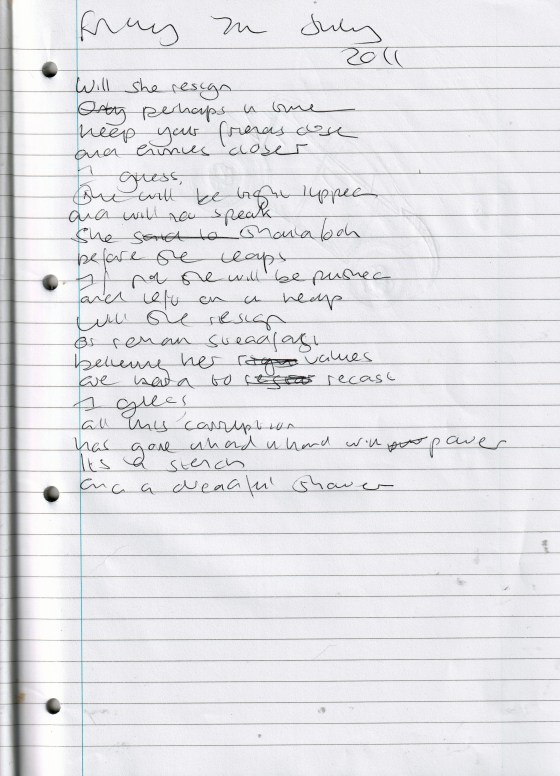 Friday in July
2011
Will she resign
perhaps in time
keep your friends close
and enimies closer
I guess,
She will be tight lipped
and will not speak
She said to Should look
before she leaps
If not she will be pushed
and left on a heap
Will she resign
or remain steadfast
believing her values
are hard to recast
I guess
all this corruption
has gone hand n hand with power
Its a stench
and a dreadful shower